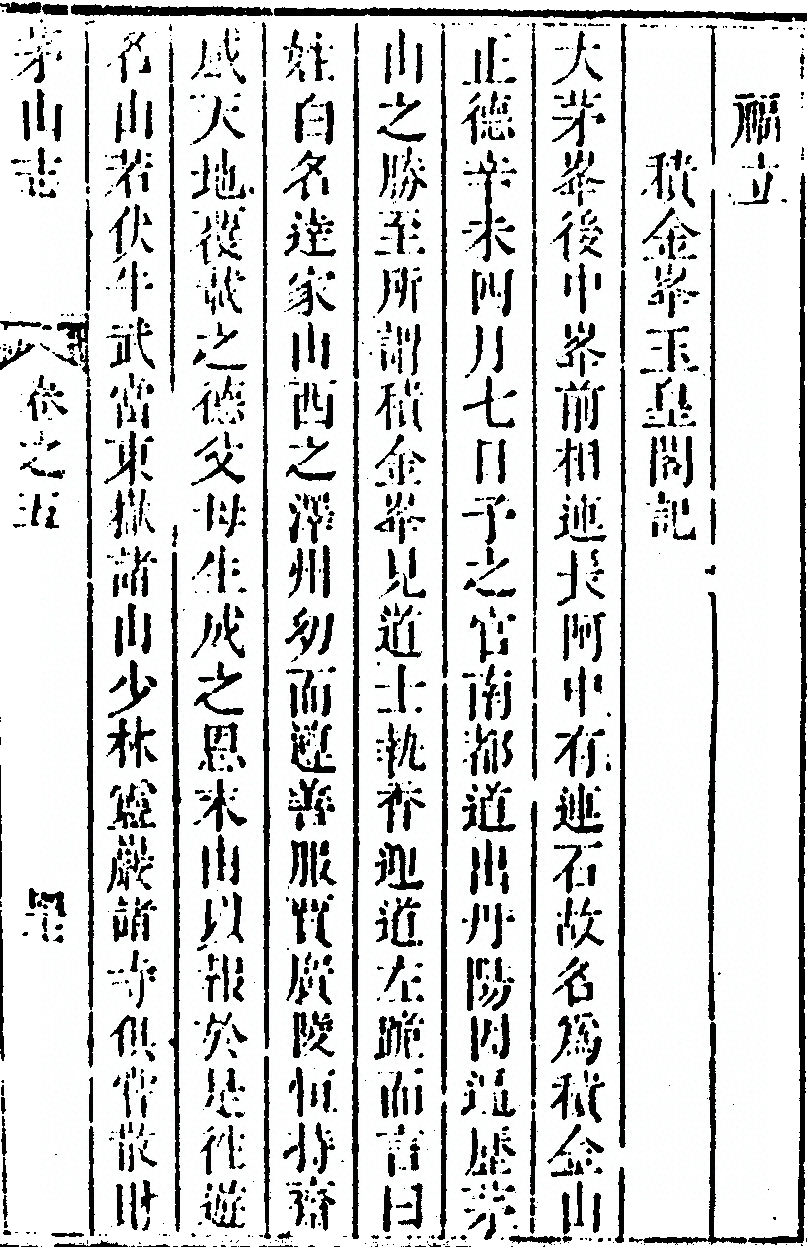 福立
積金峯玉皇閣記
大茅峯後中峯前相連長阿中有連石故名爲積金山
正德辛未四月七日予之官南都道出丹陽因遍歷茅
山之勝至所謂積金峯見道士執香迎道左跪而言曰
姓白名達家山西之澤州幼而遷善服賈廣陵恒持齋
感天地覆載之德父母生成之恩未由以報於是徃遊
名山若伏牛武當東嶽諸山少林靈巖諸寺俱甞散財
茅山志
卷之五